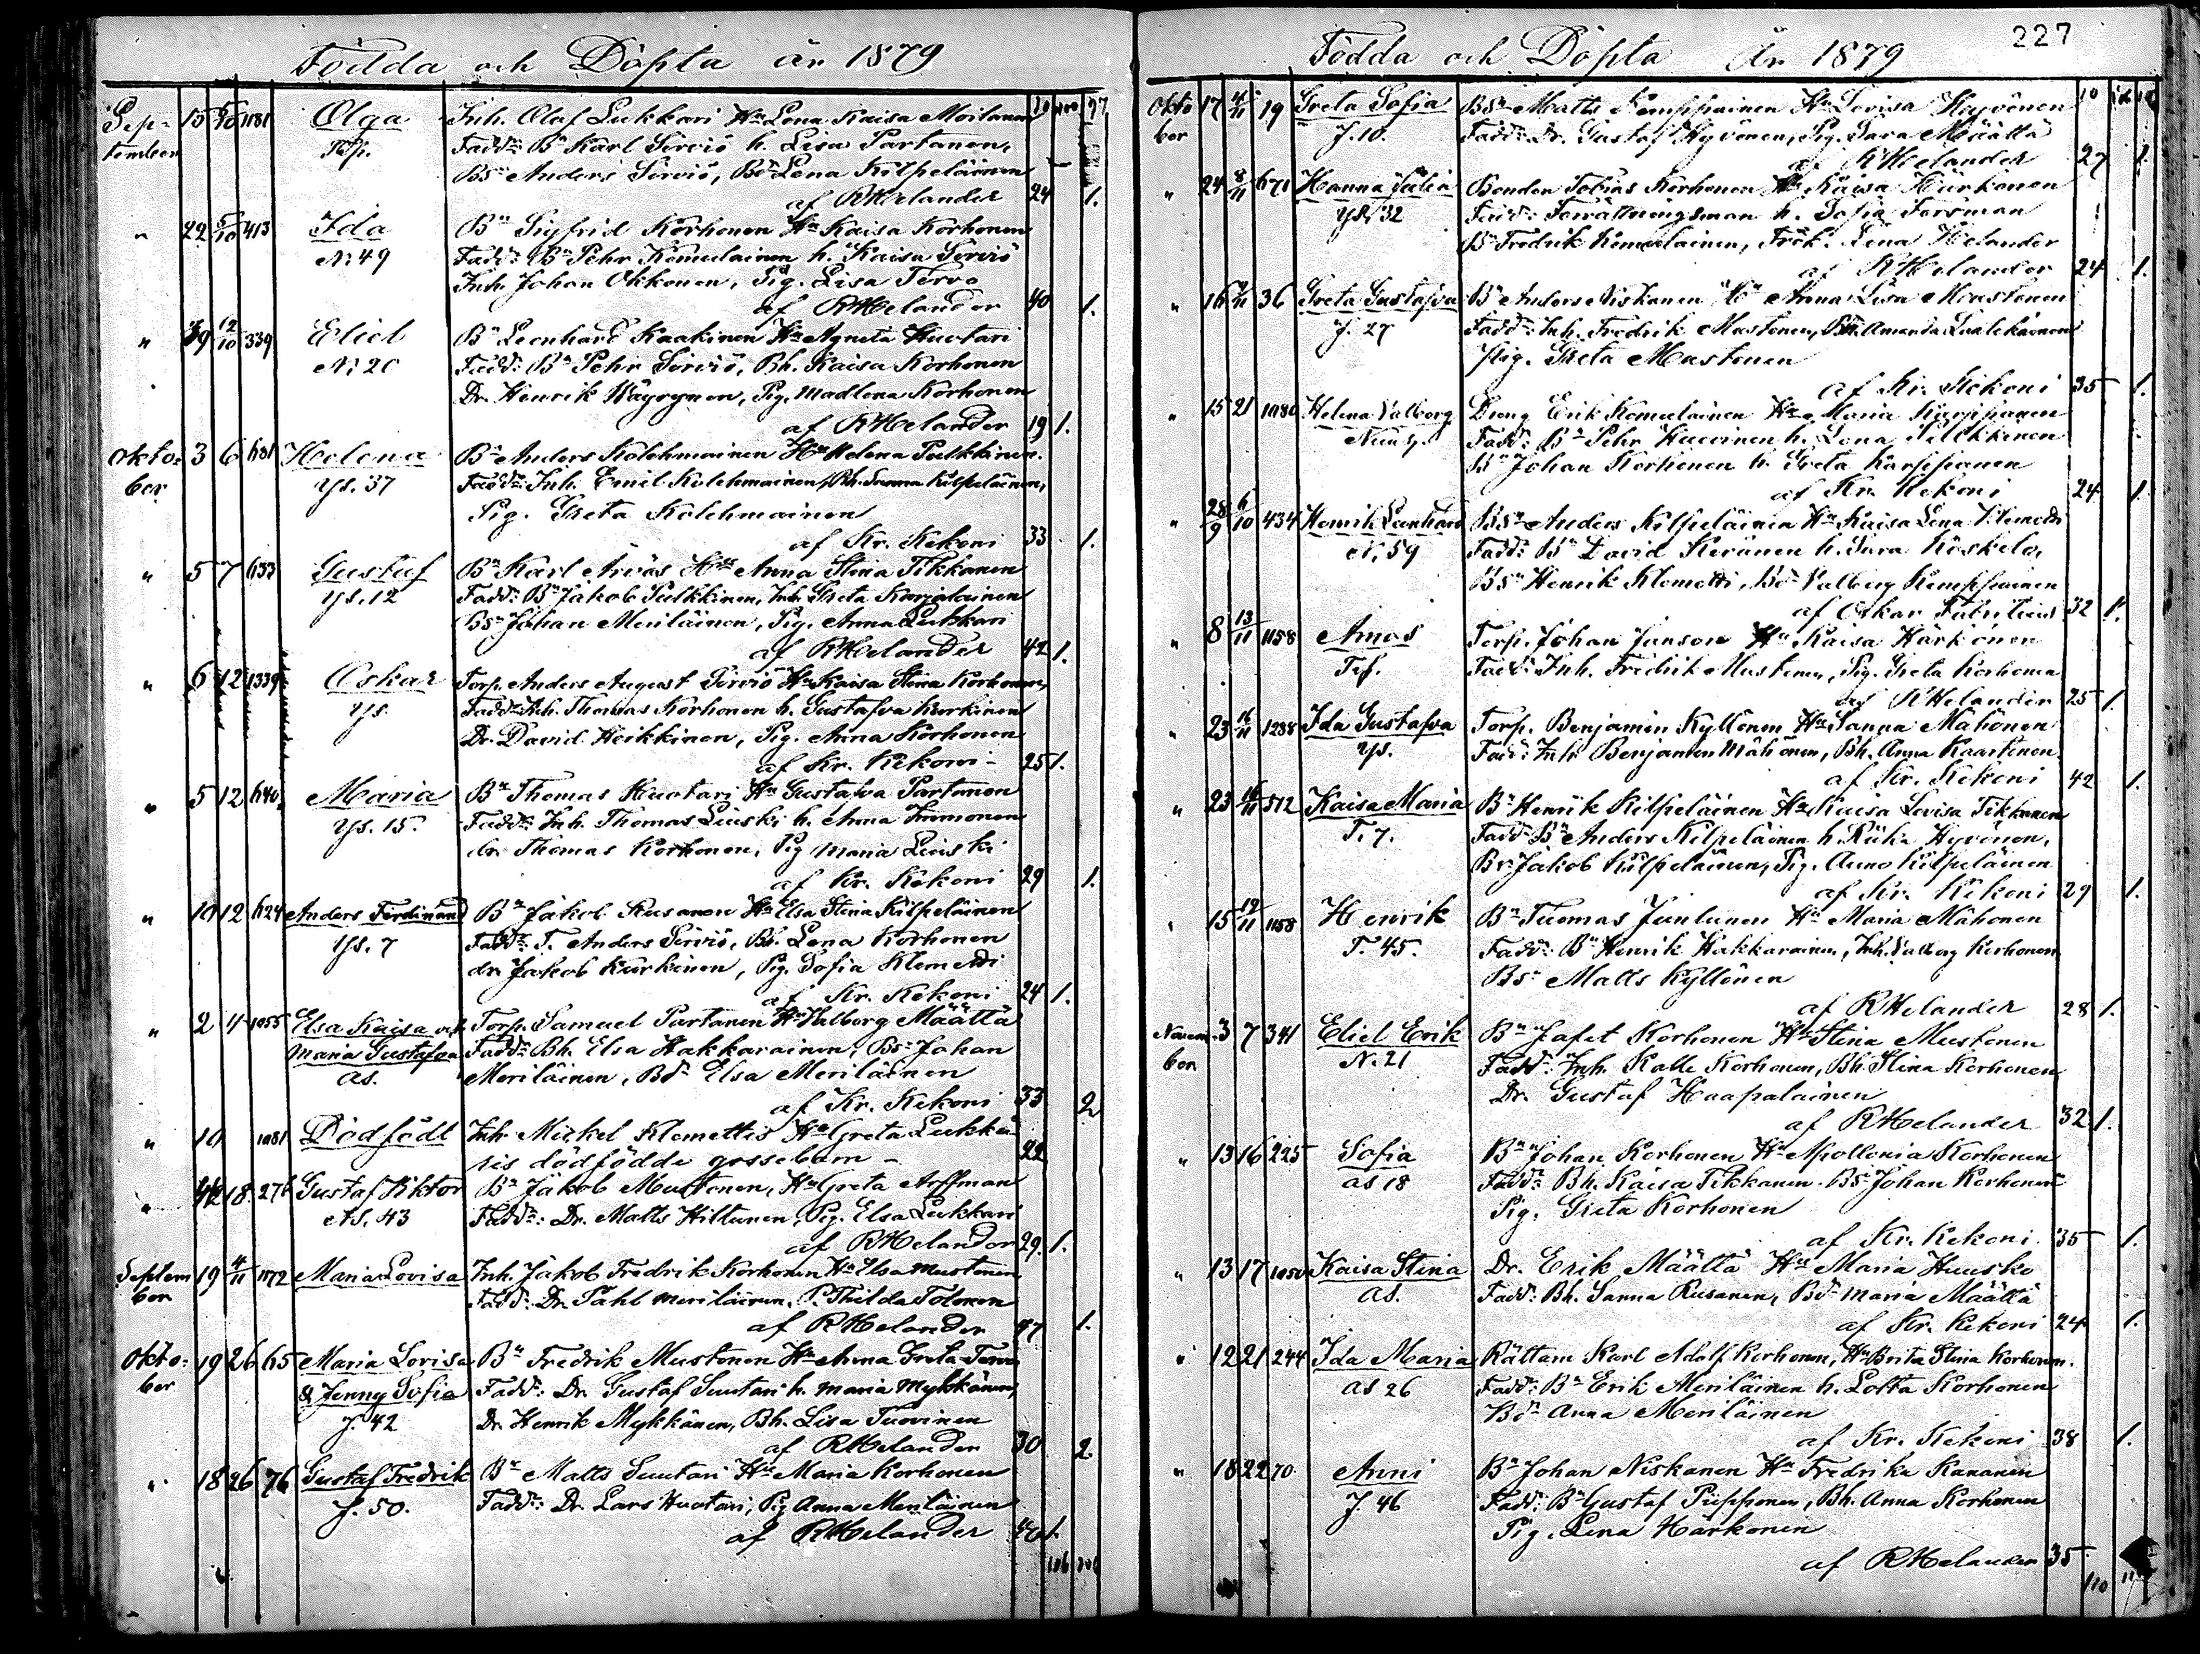 227
Födda och Döpta år 1879
Sep- 15 5/10 1181 Olga Inh. Olof Lukkari Hu Lena Kaisa Moilanen
tember Tsp. Fadd: Bn Karl Sirviö h. Lisa Partanen,
Bsn Anders Sirviö, Bdr Lena Kilpeläinen
af RHelander 24 1.
" 22 5/10 413 Ida Bn Sigfrid Korhonen Hu Kaisa Korhonen
N. 49 Fadd: Bn Pehr Komulainen h. Kaisa Sirviö
Inh. Johan Okkonen, Pig. Lisa Tervo
af RHelander 40 1.
" 29 12/10 339 Eliel Bn Leonhard Kaakinen Hu Agneta Huotari
N. 20 Fadd: Bn Pehr Sirviö, Bh. Kaisa Korhonen
Dr. Henrik Väyrynen, Pig. Madlena Korhonen
af RHelander 19 1.
Okto- 3 6 681 Helena Bn Anders Kolehmainen Hu Helena Pulkkinen.
ber Ys. 37 Fadd: Inh. Emil Kolehmainen, Bh. Sanna Kilpeläinen,
Pig. Greta Kolehmainen
af Kr. Kekoni 33 1.
" 5 7 633 Gustaf Bn Karl Arväs Hu Anna Stina Tikkanen
Ys. 12 Fadd: Bn Jakob Pulkkinen, Inh. Greta Karjalainen
Bsn Johan Meriläinen, Pig. Anna Lukkari
af RHelander 42 1.
" 6 12 1339 Oskar Torp. Anders August Sirviö Hu Kaisa Stina Korhonen,
Ys. Fadd: Inh. Thomas Korhonen h. Gustafva Kurkinen
Dr. David Heikkinen, Pig. Anna Korhonen
af Kr. Kekoni 25 1.
" 5 12 640 Maria Bn Thomas Huotari Hu Gustafva Partanen
Ys. 15. Fadd: Inh. Thomas Leinski h. Anna Immonen
dr. Thomas Korhonen, Pig Maria Leinski
af Kr. Kekoni 29 1.
" 10 12 624 Anders Ferdinand Bn Jakob Rusanen Hu Elsa Stina Kilpeläinen
Ys. 7 Fadd: T. Anders Sirviö, Bh. Lena Korhonen
dr. Jakob Kurkinen, Pig. Sofia Klemetti
af Kr. Kekoni 24 1.
" 2 4 1055 Elsa Kaisa och Torp. Samuel Partanen Hu Valborg Määttä
Maria Gustafva Fadd: Bh. Elsa Hakkarainen, Bsn Johan
As. Meriläinen, Bdr Elsa Meriläinen
af Kr. Kekoni 33 2
" 10 1081 Dödfödt Inh. Mickel Klemettis Hu Greta Lukka-
ris dödfödde gossebarn - 22
" 12 18. 276 Gustaf Viktor Bn Jakob Mustonen, Hu Greta Hoffman
As. 43 Fadd: Dr. Matts Hiltunen, Pig. Elsa Lukkari
af RHelander 29. 1.
Septem- 19 4/11 1172 Maria Lovisa Inh. Jakob Fredrik Korhonen Hu Elsa Mustonen
ber Fadd: Dr. Pahl Meriläinen, P. Thilda Tolonen
af RHelander 47 1.
Okto- 19 26 65 Maria Lovisa Bn Fredrik Mustonen Hu Anna Greta Tervo
ber & Jenny Sofia Fadd: Dr. Gustaf Suutari h. Maria Mykkänen,
J. 42 Dr. Henrik Mykkänen, Bh. Lisa Tuovinen
af RHelander 30 2.
" 18 26 76 Gustaf Fredrik Bn Matts Suutari Hu Maria Korhonen
J. 50. Fadd: Dr. Lars Huotari, Pig Anna Meriläinen
af RHelander 1.
106
Födda och Döpta År 1879
Okto- 17 19 Greta Sofia Bsn Matts Kemppainen Hu Lovisa Hyvönen
ber J. 10. Fadd: Dr. Gustaf Hyvönen, Pig. Sara Määttä
af RHelander 27 1.
" 24 8/11 671 Hanna Julia Bonden Tobias Korhonen Hu Kaisa Härkönen
Ys. 32 Fadd: Förrättningsman h. Sofia Forsman
Bn Fredrik Komulainen, Frök. Lena Helander
af RHelander 24 1.
" 16 36 Greta Gustafva Bn Anders Niskanen Hu Anna Lisa Mustonen
J. 27 Fadd: Inh. Fredrik Mustonen, Bh. Amanda
Pig. Greta Mustonen
af Kr. Kekoni 35 1.
" 15 21 1080 Helena Valborg Dräng Erik Komulainen Hu Maria Karppanen
Fadd: Bn Pehr Huovinen h. Lena Pulkkinen
Bn Johan Korhonen h. Greta Karppanen
af Kr. Kekoni 24 1.
" 28/9 6/10 434 Henrik Leonhard Bsn Anders Kilpeläinen Hu Kaisa Lena Klemetti
N. 59 Fadd: Bn David Keränen h. Sara Koskelo,
Bsn Henrik Klemetti, Bdr Valborg Kemppainen
af Oskar Fabritius 32 1.
" 8 13/11 1158 Amos Torp. Johan Janson Hu Kaisa Härkönen
Tsf. Fadd: Inh. Fredrik Mustonen, Pig. Greta Korhonen
af RHelander 25 1.
" 23 16/11 1288 Ida Gustafva Torp. Benjamin Kyllönen Hu Sanna Mähönen
Ys. Fadd: Inh. Benjamin Mähönen, Bh. Anna Kaartinen
af Kr. Kekoni 42 1.
" 23 16/11 512 Kaisa Maria Bn Henrik Kilpeläinen Hu Kaisa Lovisa Tikkanen
T. 7. Fadd: Bn Anders Kilpeläinen h. Hyvönen,
Bn Jakob Kilpeläinen, Pig. Anna Kilpeläinen
af Kr. Kekoni 29 1.
" 15 12/11 1158 Henrik Bn Tuomas Juntunen Hu Maria Mähönen
T. 45. Fadd: Bn Henrik Hakkarainen, Inh. Valborg Korhonen
Bsn Matts Kyllönen
af RHelander 28 1.
Novem- 3 7 341 Eliel Erik Bn Jafet Korhonen Hu Stina Mustonen
ber N. 21 Fadd: Inh. Kalle Korhonen, Bh. Stina Korhonen
Dr. Gustaf Haapalainen
af RHelander 32 1.
" 13 16 225 Sofia Bn Johan Korhonen Hu Apollonia Korhonen
As 18 Fadd: Bh. Kaisa Tikkanen. Bsn Johan Korhonen
Pig. Greta Korhonen
af Kr. Kekoni 35 1.
" 13 17 1050 Kaisa Stina Dr. Erik Määttä Hu Maria Huusko
As. Fadd: Bh. Sanna Rusanen, Bdr Maria Määttä
af Kr. Kekoni 24 1.
" 12 21 244 Ida Maria Rättare Karl Adolf Korhonen, Hu Brita Stina Korhonen.
As 26 Fadd: Bn Erik Meriläinen h. Lotta Korhonen
Bdr Anna Meriläinen
af Kr. Kekoni 38 1.
" 18 22 70 Anni Bn Johan Niskanen Hu Fredrika Kananen
J. 46 Fadd: Bn Gustaf Piipponen, Bh. Anna Korhonen
Pig. Lena Härkönen
af RHelander 35
110